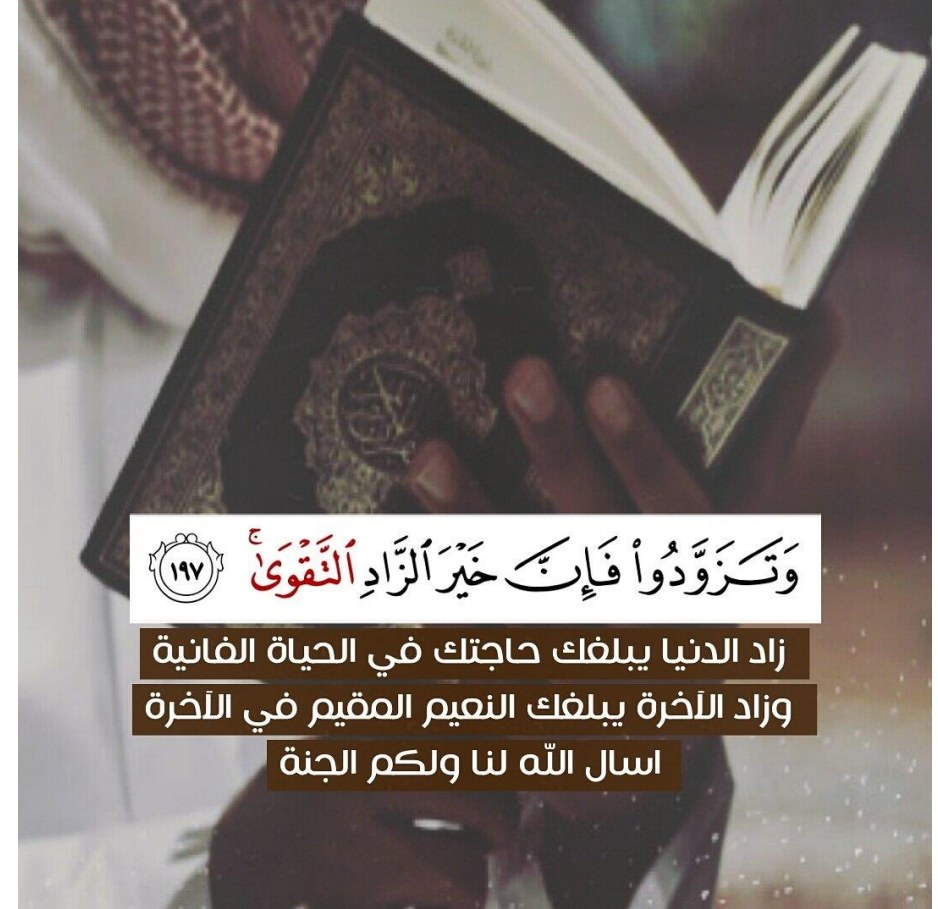 وَتَزَوَّدُوا۟ فَإِنَّ خَيْرَ ٱلزَّادِ ٱلتَّقْوَىٰ ۚ ١٩٧
زاد الدنيا يبلغك حاجتك في الحياة الفانية
وزاد الآخرة يبلغك النعيم المقيم في الآخرة
اسال الله لنا ولكم الجنة